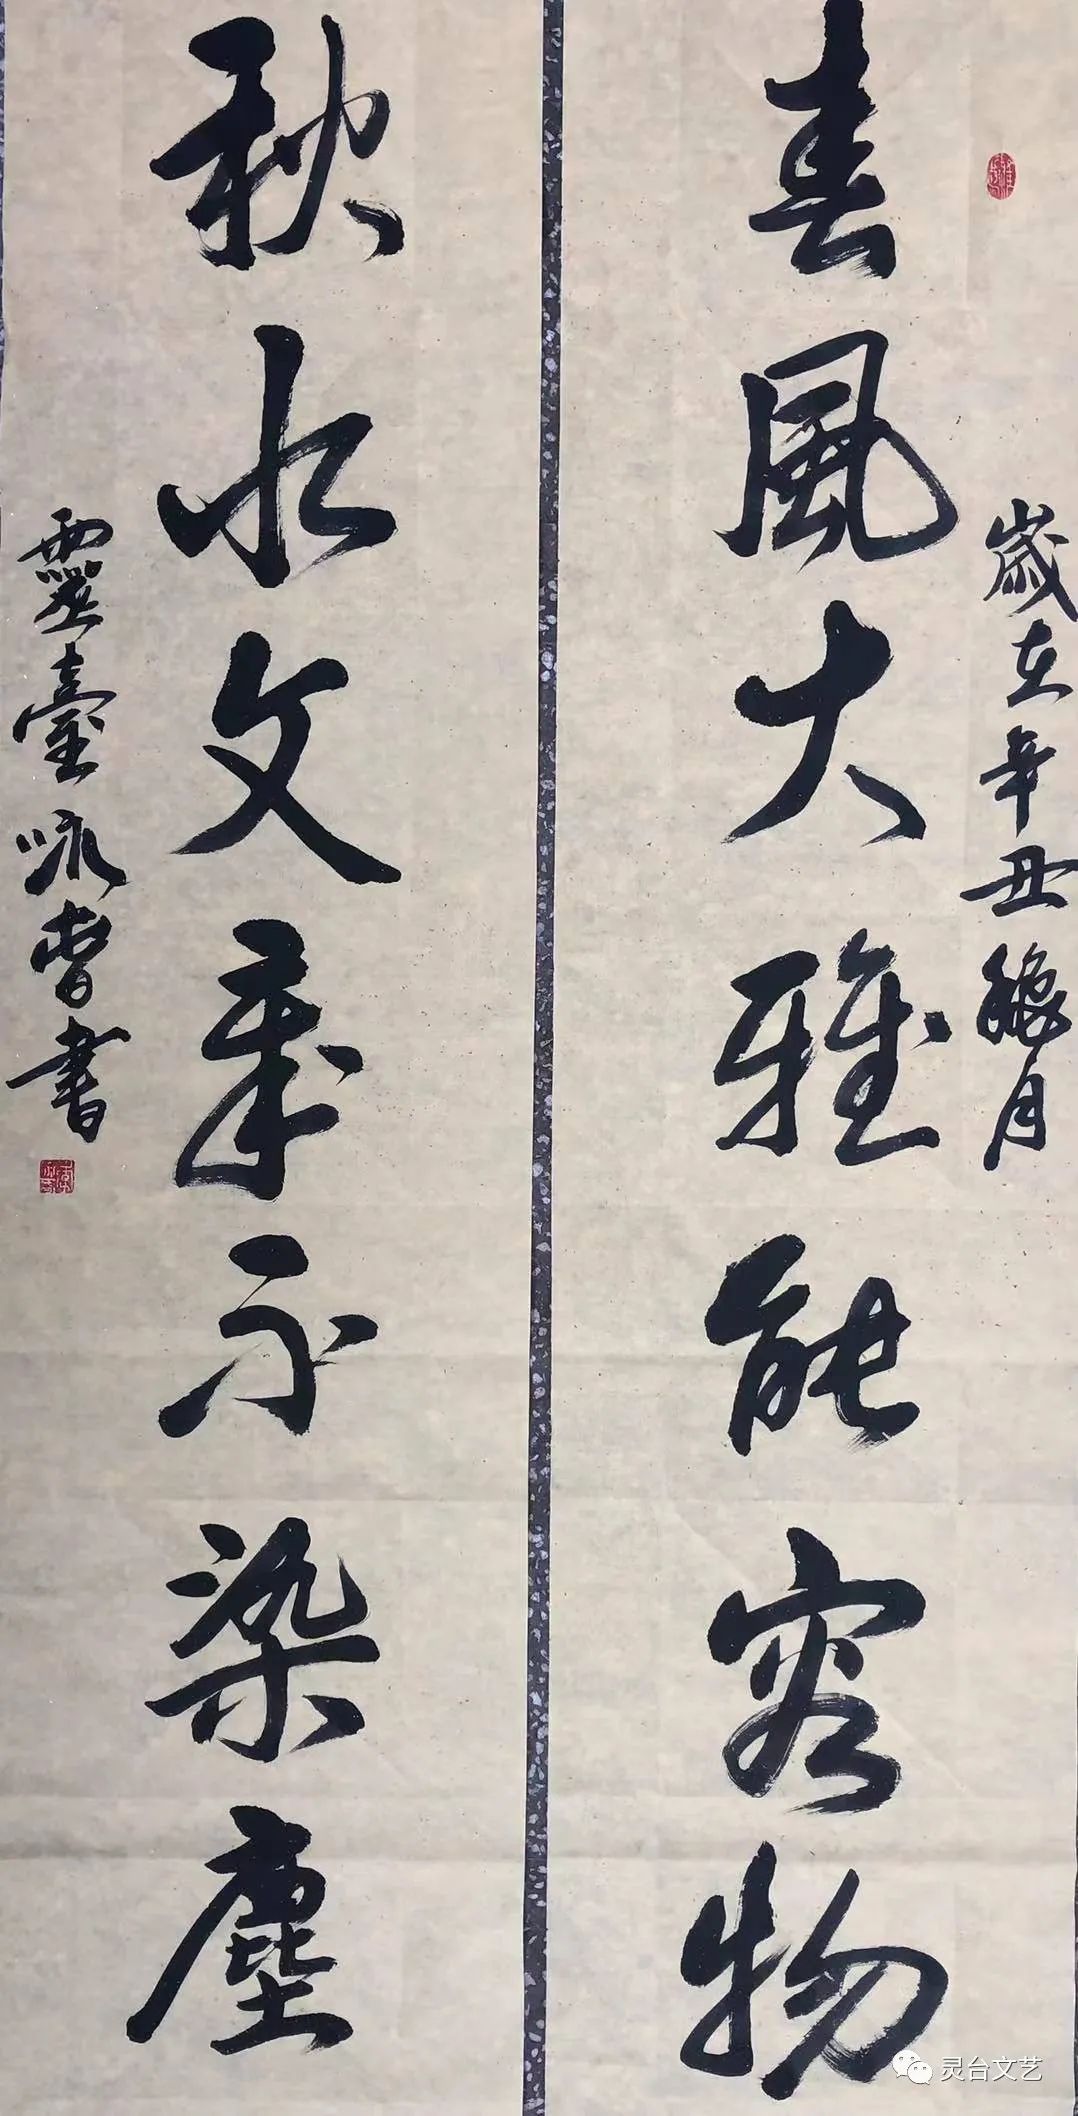 歲在辛丑穐月
春風大雅能容物
秋水文章不染塵
靈臺咏哲書
灵台文艺